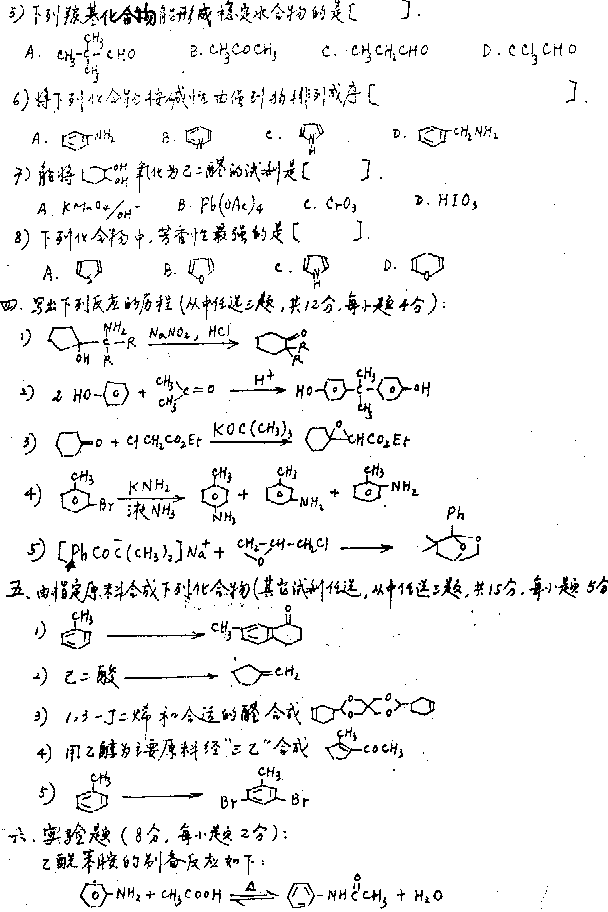 5) 下列羰基化合物能形成稳定水合物的是 [ ].
A. CH3-C(CH3)(CH3)-CHO B. CH3COCH3 C. CH3CH2CHO D. CCl3CHO
6) 将下列化合物按碱性由强到弱排列成序 [ ].
A. NH2 B. N C. N H D. CH2NH2
7) 能将 OH OH 氧化为己二醛的试剂是 [ ].
A. KMnO4/OH- B. Pb(OAc)4 C. CrO3 D. HIO3
8) 下列化合物中,芳香性最强的是 [ ].
A. S B. O C. N H D. O
四. 写出下列反应的历程 (从中任选三题,共12分,每小题4分):
1) OH C NH2 R R NaNO2, HCl O R R
2) 2 HO- + CH3 CH3 C=O H+ HO- CH3 C CH3 -OH
3) =O + ClCH2CO2Et KOC(CH3)3 O CHCO2Et
4) CH3 Br KNH2 液NH3 CH3 NH2 + CH3 NH2 + CH3 NH2
5) [PhCOC̄(CH3)2]Na+ + CH2-CH-CH2Cl O Ph O O
五. 由指定原料合成下列化合物(其它试剂任选,从中任选三题,共15分,每小题5分
1) CH3 CH3 O
2) 己二酸 =CH2
3) 1,3-丁二烯和合适的醛合成 O O O O
4) 用乙醇为主要原料经"三乙"合成 CH3 COCH3
5) CH3 Br CH3 Br
六. 实验题 (8分,每小题2分):
乙酰苯胺的制备反应如下:
-NH2 + CH3COOH Δ -NHCCH3 O + H2O